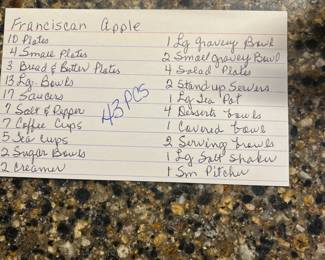 Franciscan Apple
10 Plates
4 Small Plates
3 Bread & Butter Plates
13 Lg. Bowls
17 Saucers
7 Salt & Pepper
7 Coffee Cups
5 Tea Cups
2 Sugar Bowls
2 Creamer
43 PCS
1 Lg gravey Bowl
2 Small gravey Bowl
4 Salad Plates
2 Stand up Servers
1 Lg Tea Pot
4 Desserts bowls
1 Covered bowl
2 Serving bowls
1 Lg Salt Shaker
1 Sm Pitcher